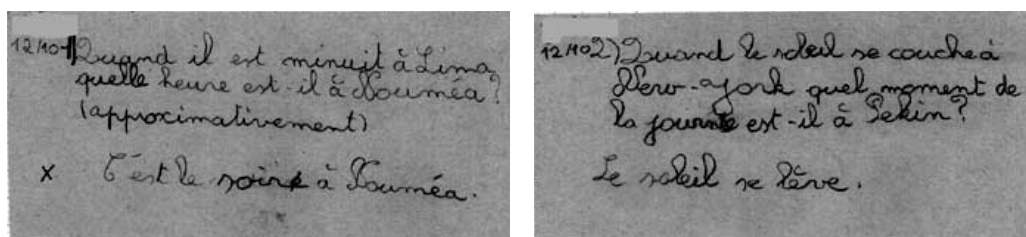 12/10 1) Quand il est minuit à Lima
quelle heure est-il à Nouméa?
(approximativement)
x C'est le soire à Nouméa.
12/10 2) Quand le soleil se couche à
New-york quel moment de
la journé est-il à Pekin?
Le soleil se lève.